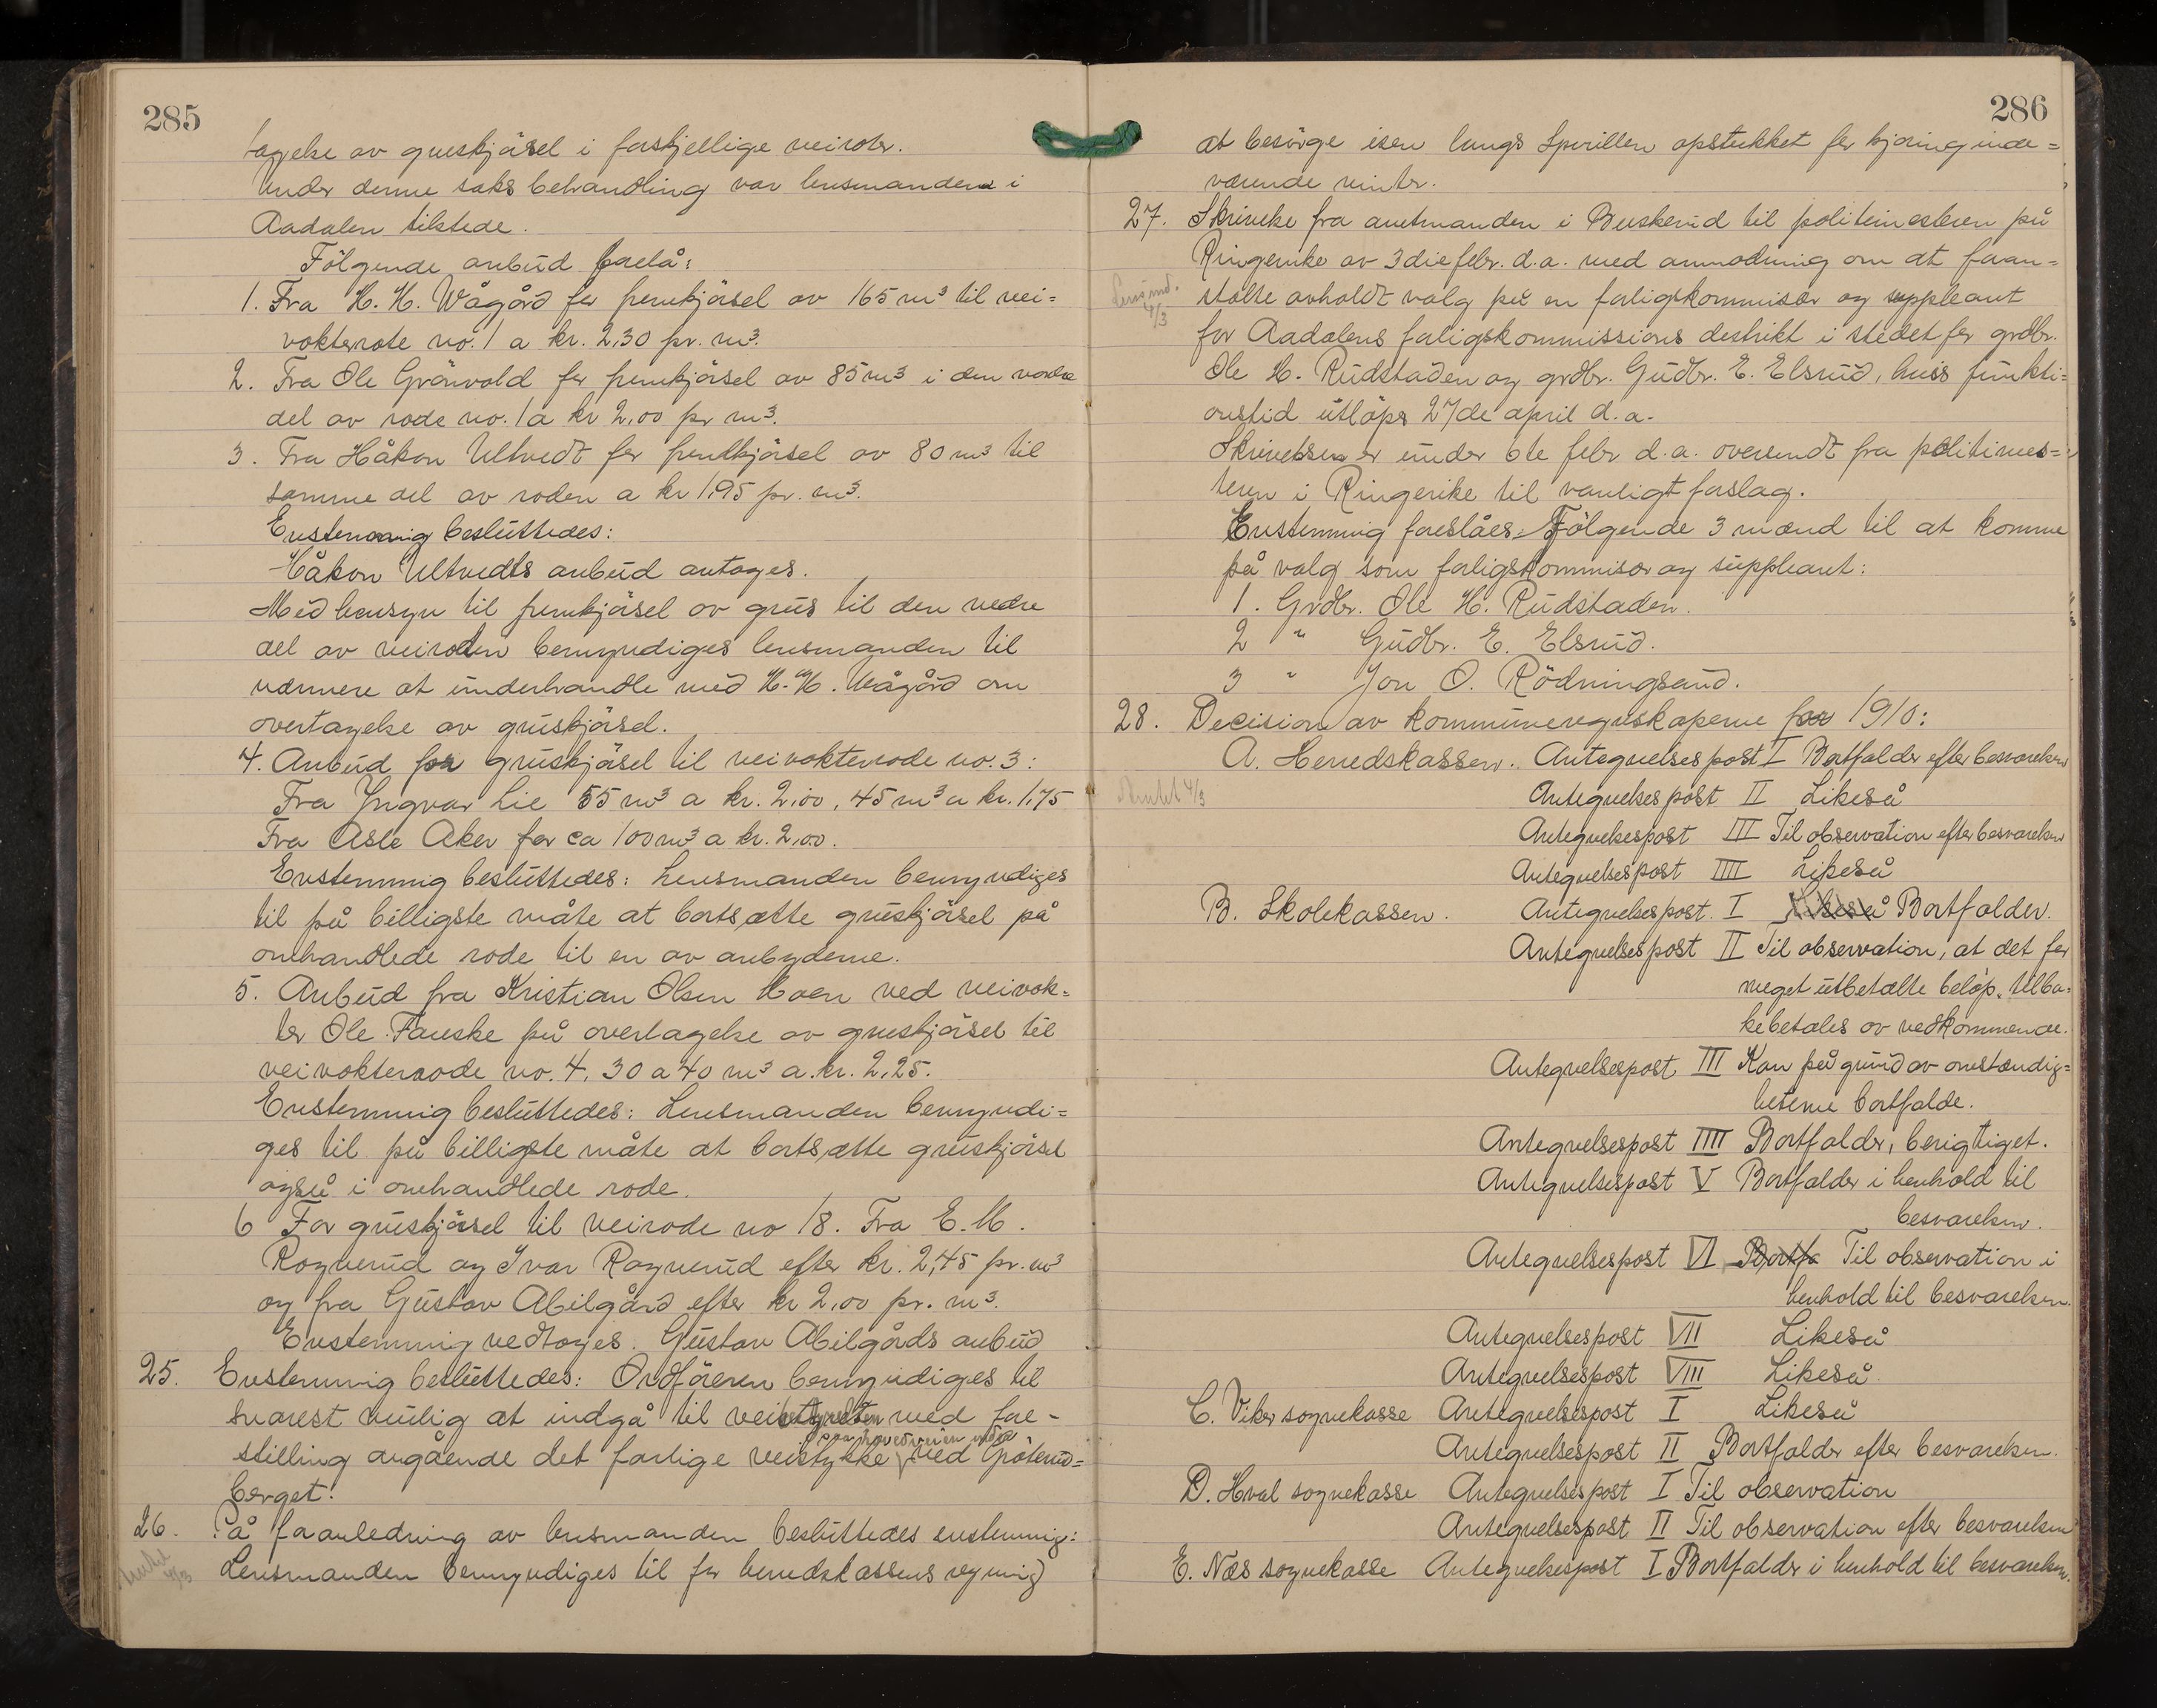 285
tagelse av gruskjørsel i forskjellige veiroder.
Under denne saks behandling var lensmanden i
Aadalen tilstede.
Følgende anbud forelå:
1. Fra H. H. Wågård for fremkjørsel av 165 m³ til vei=
vokterrote no. 1 a kr. 2,30 pr. m³.
2. Fra Ole Grönvold for fremkjørsel av 85 m³ i den vestre
del av rode no. 1 a kr 2,00 pr m³.
3. Fra Håkon Ultvedt for fremkjørsel av 80 m³ til
samme del av roden a kr 1,95 pr. m³.
Enstemmig besluttedes:
Håkon Ultvedts anbud antages.
Med hensyn til fremkjørsel av grus til den nedre
del av veiroden bemyndiges lensmanden til
nærmere at underhandle med H. H. Wågård om
overtagelse av gruskjørsel.
4. Anbud for gruskjørsel til veivokterrode no. 3:
Fra Yngvar Lie 55 m³ a kr. 2,00, 45 m³ a kr. 1,75
Fra Asle Aker for ca 100 m³ a kr. 2,00.
Enstemmig besluttedes: Lensmanden bemyndiges
til på billigste måte at bortsætte gruskjørsel på
omhandlede rode til en av anbyderne.
5. Anbud fra Kristian Olsen Moen ved veivok=
ter Ole Fauske på overtagelse av gruskjørsel til
veivokterrode no. 4. 30 a 40 m³ a kr. 2,25.
Enstemmig besluttedes: Lensmanden bemyndi=
ges til på billigste måte at bortsætte gruskjørsel
også i omhandlede rode.
6 For gruskjørsel til veirode no 18. Fra E. M.
Rognerud og Ivar Rognerud efter kr. 2,45 pr. m³
og fra Gustav Abilgård efter kr 2,00 pr. m³.
Enstemmig vedtoges. Gustav Abilgårds anbud
25. Enstemmig besluttedes: Ordføreren bemyndiges til
snarest mulig at indgå til veibestyrelsen med fore-
paa hovedveien under
stilling angående det farlige veistykke ved Gråterud=
berget.
26. På foranledning av lensmanden besluttedes enstemmig:
Lensmanden bemyndiges til for herredskassens regning
286
at besørge isen langs Sperillen opstukket for kjøring inde=
værende vinter.
27. Skrivelse fra amtmanden i Buskerud til politimesteren på
Ringerike av 3die febr. d.a. med anmodning om at foran=
Lensmd. 4/3
stalte avholdt valg på en forligskommisær og suppleant
for Aadalens forligskommissions destrikt i stedet for grdbr.
Ole H. Rudstaden og grdbr. Gudbr. E. Elsrud, hvis funkti=
onstid utløper 27de april d.a.
Skrivelsen er under 6te febr d.a. oversendt fra politimes=
teren i Ringerike til vanligt forslag.
Enstemmig foreslåes. Følgende 3 mænd til at komme
på valg som forligskommisær og suppleant:
1. Grdbr. Ole H. Rudstaden.
2 " Gudbr. E. Elsrud.
3 " Jon O. Rödningsand.
28. Decision av kommuneregnskaperne for 1910:
A. Herredskassen. Antegnelsespost I Bortfalder efter besvarelsen
4/3
Antegnelsespost II Likeså
Antegnelsespost III Til observation efter besvarelsen
Antegnelsespost IIII Likeså
B. Skolekassen. Antegnelsespost. I Likeså Bortfalder.
Antegnelsespost II Til observation, at det for
meget utbetalte beløp, tilba=
kebetales av vedkommende.
Antegnelsespost III Kan på grund av omstændig=
heterne bortfalde.
Antegnelsespost IIII Bortfalder, berigtiget.
Antegnelsespost V Bortfalder i henhold til
besvarelsen.
Antegnelsespost VI Bortfa Til observation i
henhold til besvarelsen.
Antegnelsespost VII Likeså
Antegnelsespost VIII Likeså
C. Viker sognekasse Antegnelsespost I Likeså
Antegnelsespost II Bortfalder efter besvarelsen.
D. Hval sognekasse Antegnelsespost I Til observation
Antegnelsespost II Til observation efter besvarelsen
E. Næs sognekasse Antegnelsespost I Bortfalder i henhold til besvarelsen.